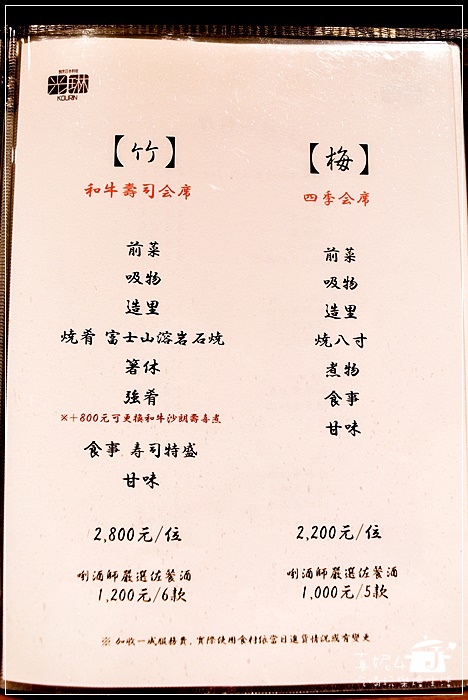 光琳
KOURIN
【竹】
和牛壽司会席
前菜
吸物
造里
焼肴 富士山溶岩石焼
箸休
強肴
※+800元可更換和牛沙朗壽喜煮
食事 寿司特盛
甘味
2,800元/位
唎酒師嚴選佐餐酒
1,200元/6款
【梅】
四季会席
前菜
吸物
造里
焼八寸
煮物
食事
甘味
2,200元/位
唎酒師嚴選佐餐酒
1,000元/5款
※ 加收一成服務費,實際使用食材依當日進貨情況或有變更